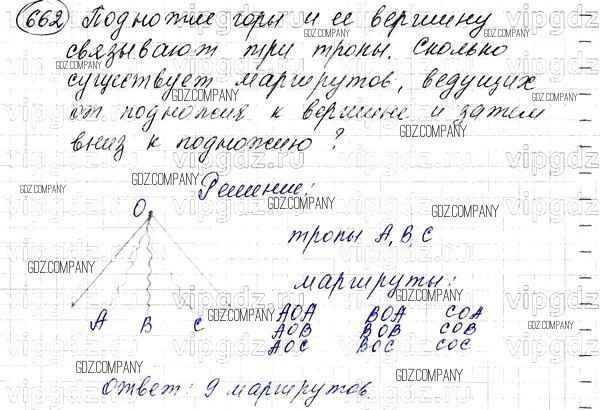 662 Подножие горы и ее вершину
связывают три тропы. Сколько
существует маршрутов, ведущих
от подножия к вершине и затем
вниз к подножию?
Решение:
O
тропы A, B, C
маршруты:
A B C
AOA BOA COA
AOB BOB COB
AOC BOC COC
Ответ: 9 маршрутов.
GDZ.COMPANY
vipgdz.ru